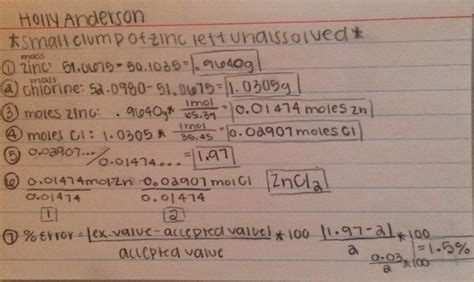 Holly Anderson
*small clump of zinc left undissolved*
① mass zinc: 51.0675-50.1035=.9640g
② mass chlorine: 52.0980-51.0675=1.0305g
③ moles zinc: .9640g * 1mol/65.39 = 0.01474 moles Zn
④ moles Cl: 1.0305 * 1mol/35.45 = 0.02907 moles Cl
⑤ 0.02907.../0.01474... = 1.97
⑥ 0.01474molZn/0.01474 0.02907molCl/0.01474 ZnCl2
1 2
⑦ % Error = |ex. value - accepted value|/accepted value * 100 |1.97-2|/2 * 100
0.03/2 * 100 = 1.5%